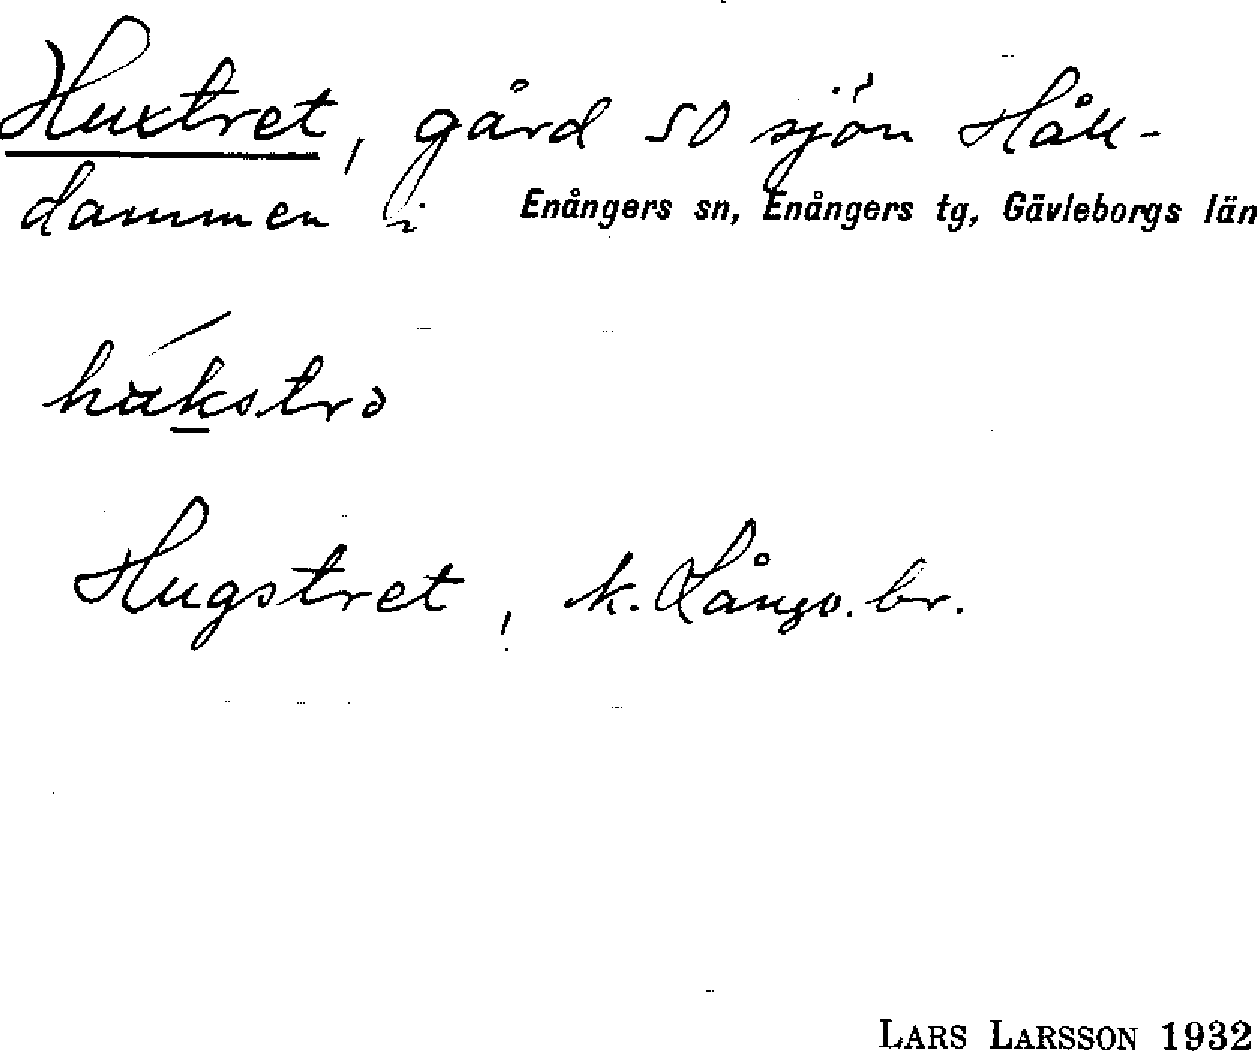 Huxtret, gård SO sjön Håll-
dammen i Enångers sn, Enångers tg, Gävleborgs län
Hugstret, k. br.
LARS LARSSON 1932